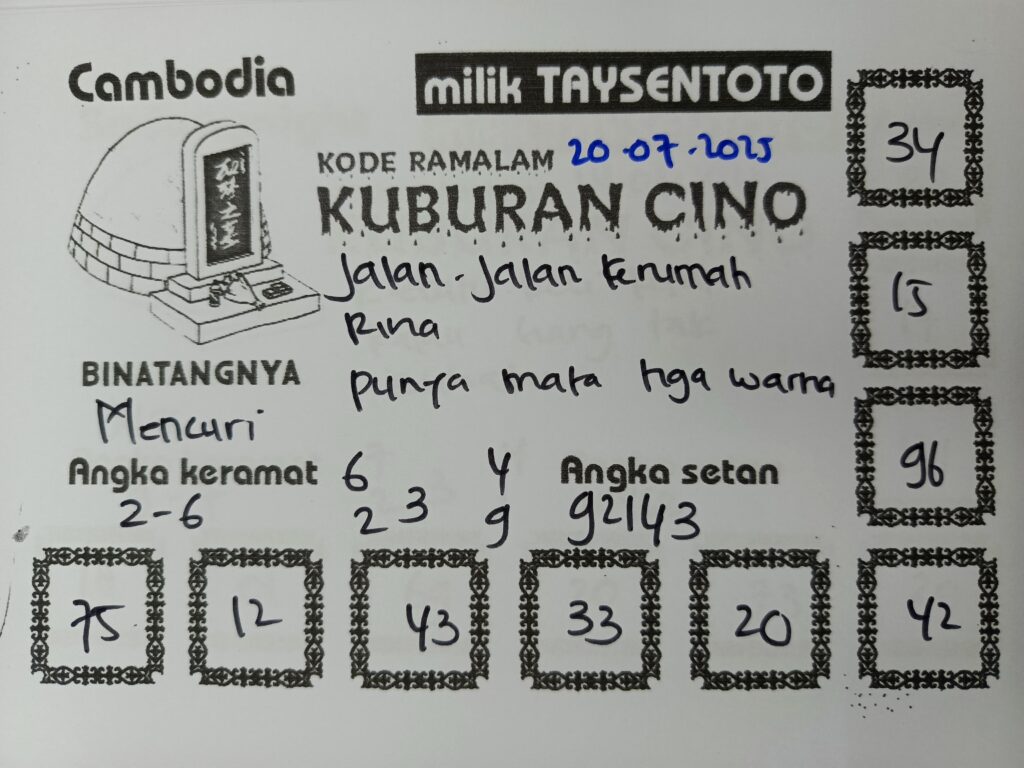 Cambodia
milik TAYSENTOTO
KODE RAMALAM 20-07-2025
KUBURAN CINO
Jalan-Jalan kerumah
Rina
punya mata tiga warna
BINATANGNYA
Mencuri
Angka keramat
2-6
6 4
3
2 9
Angka setan
92143
34
15
96
75 12 43 33 20 42